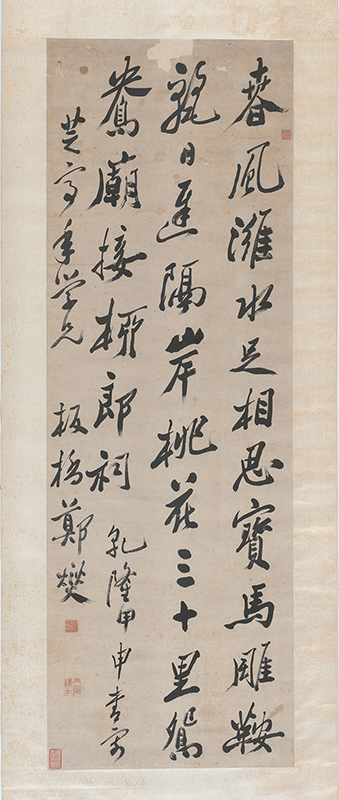 春風濰水足相思寶馬雕鞍
日遲隔岸桃花三十里鴛
鴦廟接柳郎祠 乾隆甲申書寄
芝亭年學兄 板橋鄭燮